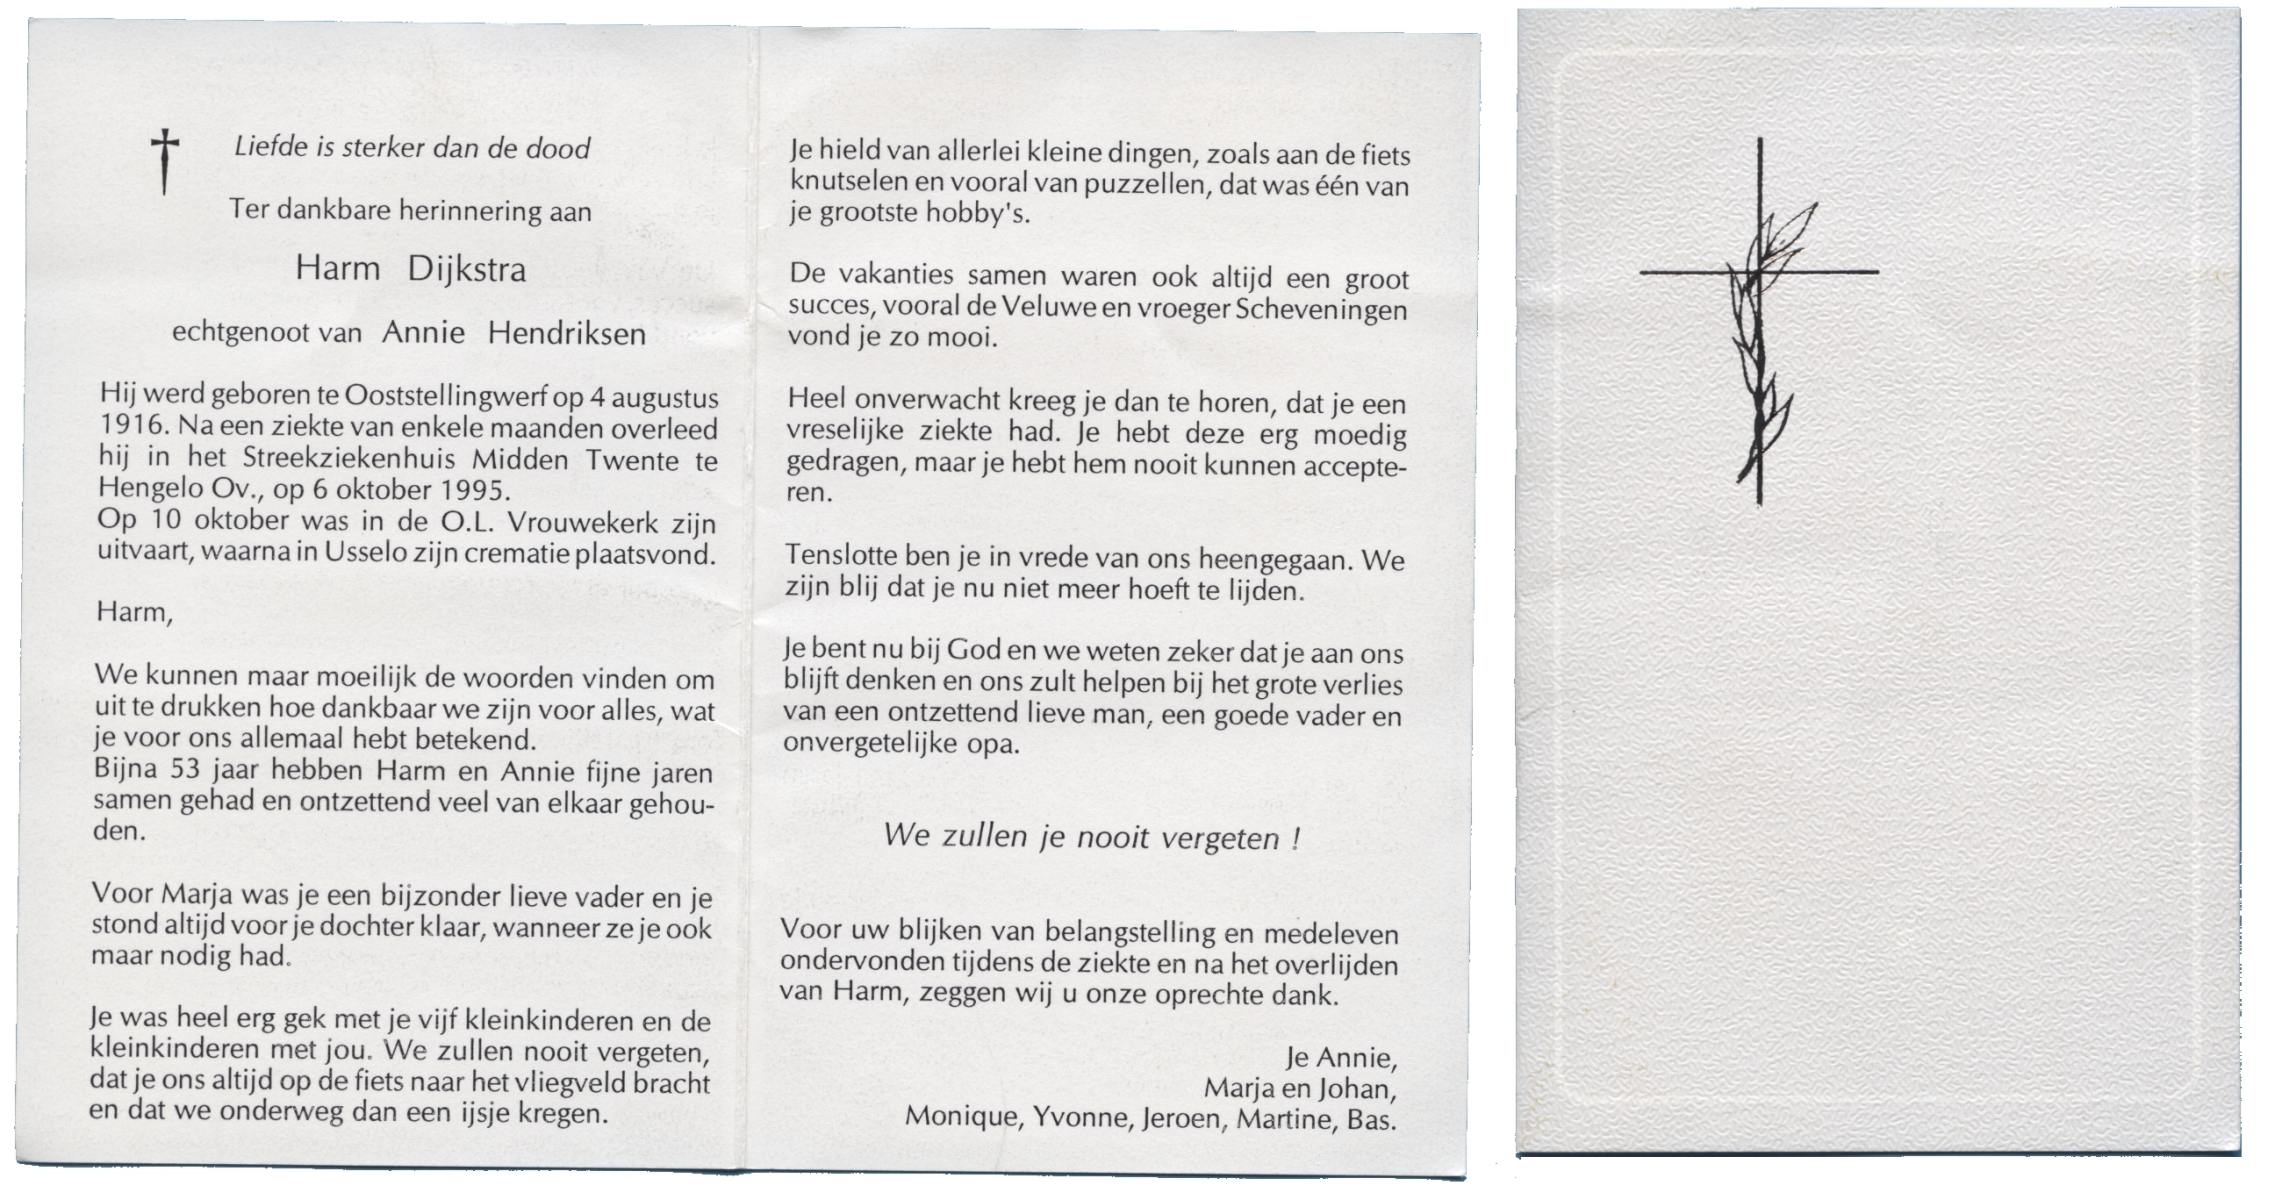 Liefde is sterker dan de dood
Ter dankbare herinnering aan
Harm Dijkstra
echtgenoot van Annie Hendriksen
Hij werd geboren te Ooststellingwerf op 4 augustus
1916. Na een ziekte van enkele maanden overleed
hij in het Streekziekenhuis Midden Twente te
Hengelo Ov., op 6 oktober 1995.
Op 10 oktober was in de O.L. Vrouwekerk zijn
uitvaart, waarna in Usselo zijn crematie plaatsvond.
Harm,
We kunnen maar moeilijk de woorden vinden om
uit te drukken hoe dankbaar we zijn voor alles, wat
je voor ons allemaal hebt betekend.
Bijna 53 jaar hebben Harm en Annie fijne jaren
samen gehad en ontzettend veel van elkaar gehou-
den.
Voor Marja was je een bijzonder lieve vader en je
stond altijd voor je dochter klaar, wanneer ze je ook
maar nodig had.
Je was heel erg gek met je vijf kleinkinderen en de
kleinkinderen met jou. We zullen nooit vergeten,
dat je ons altijd op de fiets naar het vliegveld bracht
en dat we onderweg dan een ijsje kregen.
Je hield van allerlei kleine dingen, zoals aan de fiets
knutselen en vooral van puzzellen, dat was één van
je grootste hobby's.
De vakanties samen waren ook altijd een groot
succes, vooral de Veluwe en vroeger Scheveningen
vond je zo mooi.
Heel onverwacht kreeg je dan te horen, dat je een
vreselijke ziekte had. Je hebt deze erg moedig
gedragen, maar je hebt hem nooit kunnen accepte-
ren.
Tenslotte ben je in vrede van ons heengegaan. We
zijn blij dat je nu niet meer hoeft te lijden.
Je bent nu bij God en we weten zeker dat je aan ons
blijft denken en ons zult helpen bij het grote verlies
van een ontzettend lieve man, een goede vader en
onvergetelijke opa.
We zullen je nooit vergeten !
Voor uw blijken van belangstelling en medeleven
ondervonden tijdens de ziekte en na het overlijden
van Harm, zeggen wij u onze oprechte dank.
Je Annie,
Marja en Johan,
Monique, Yvonne, Jeroen, Martine, Bas.